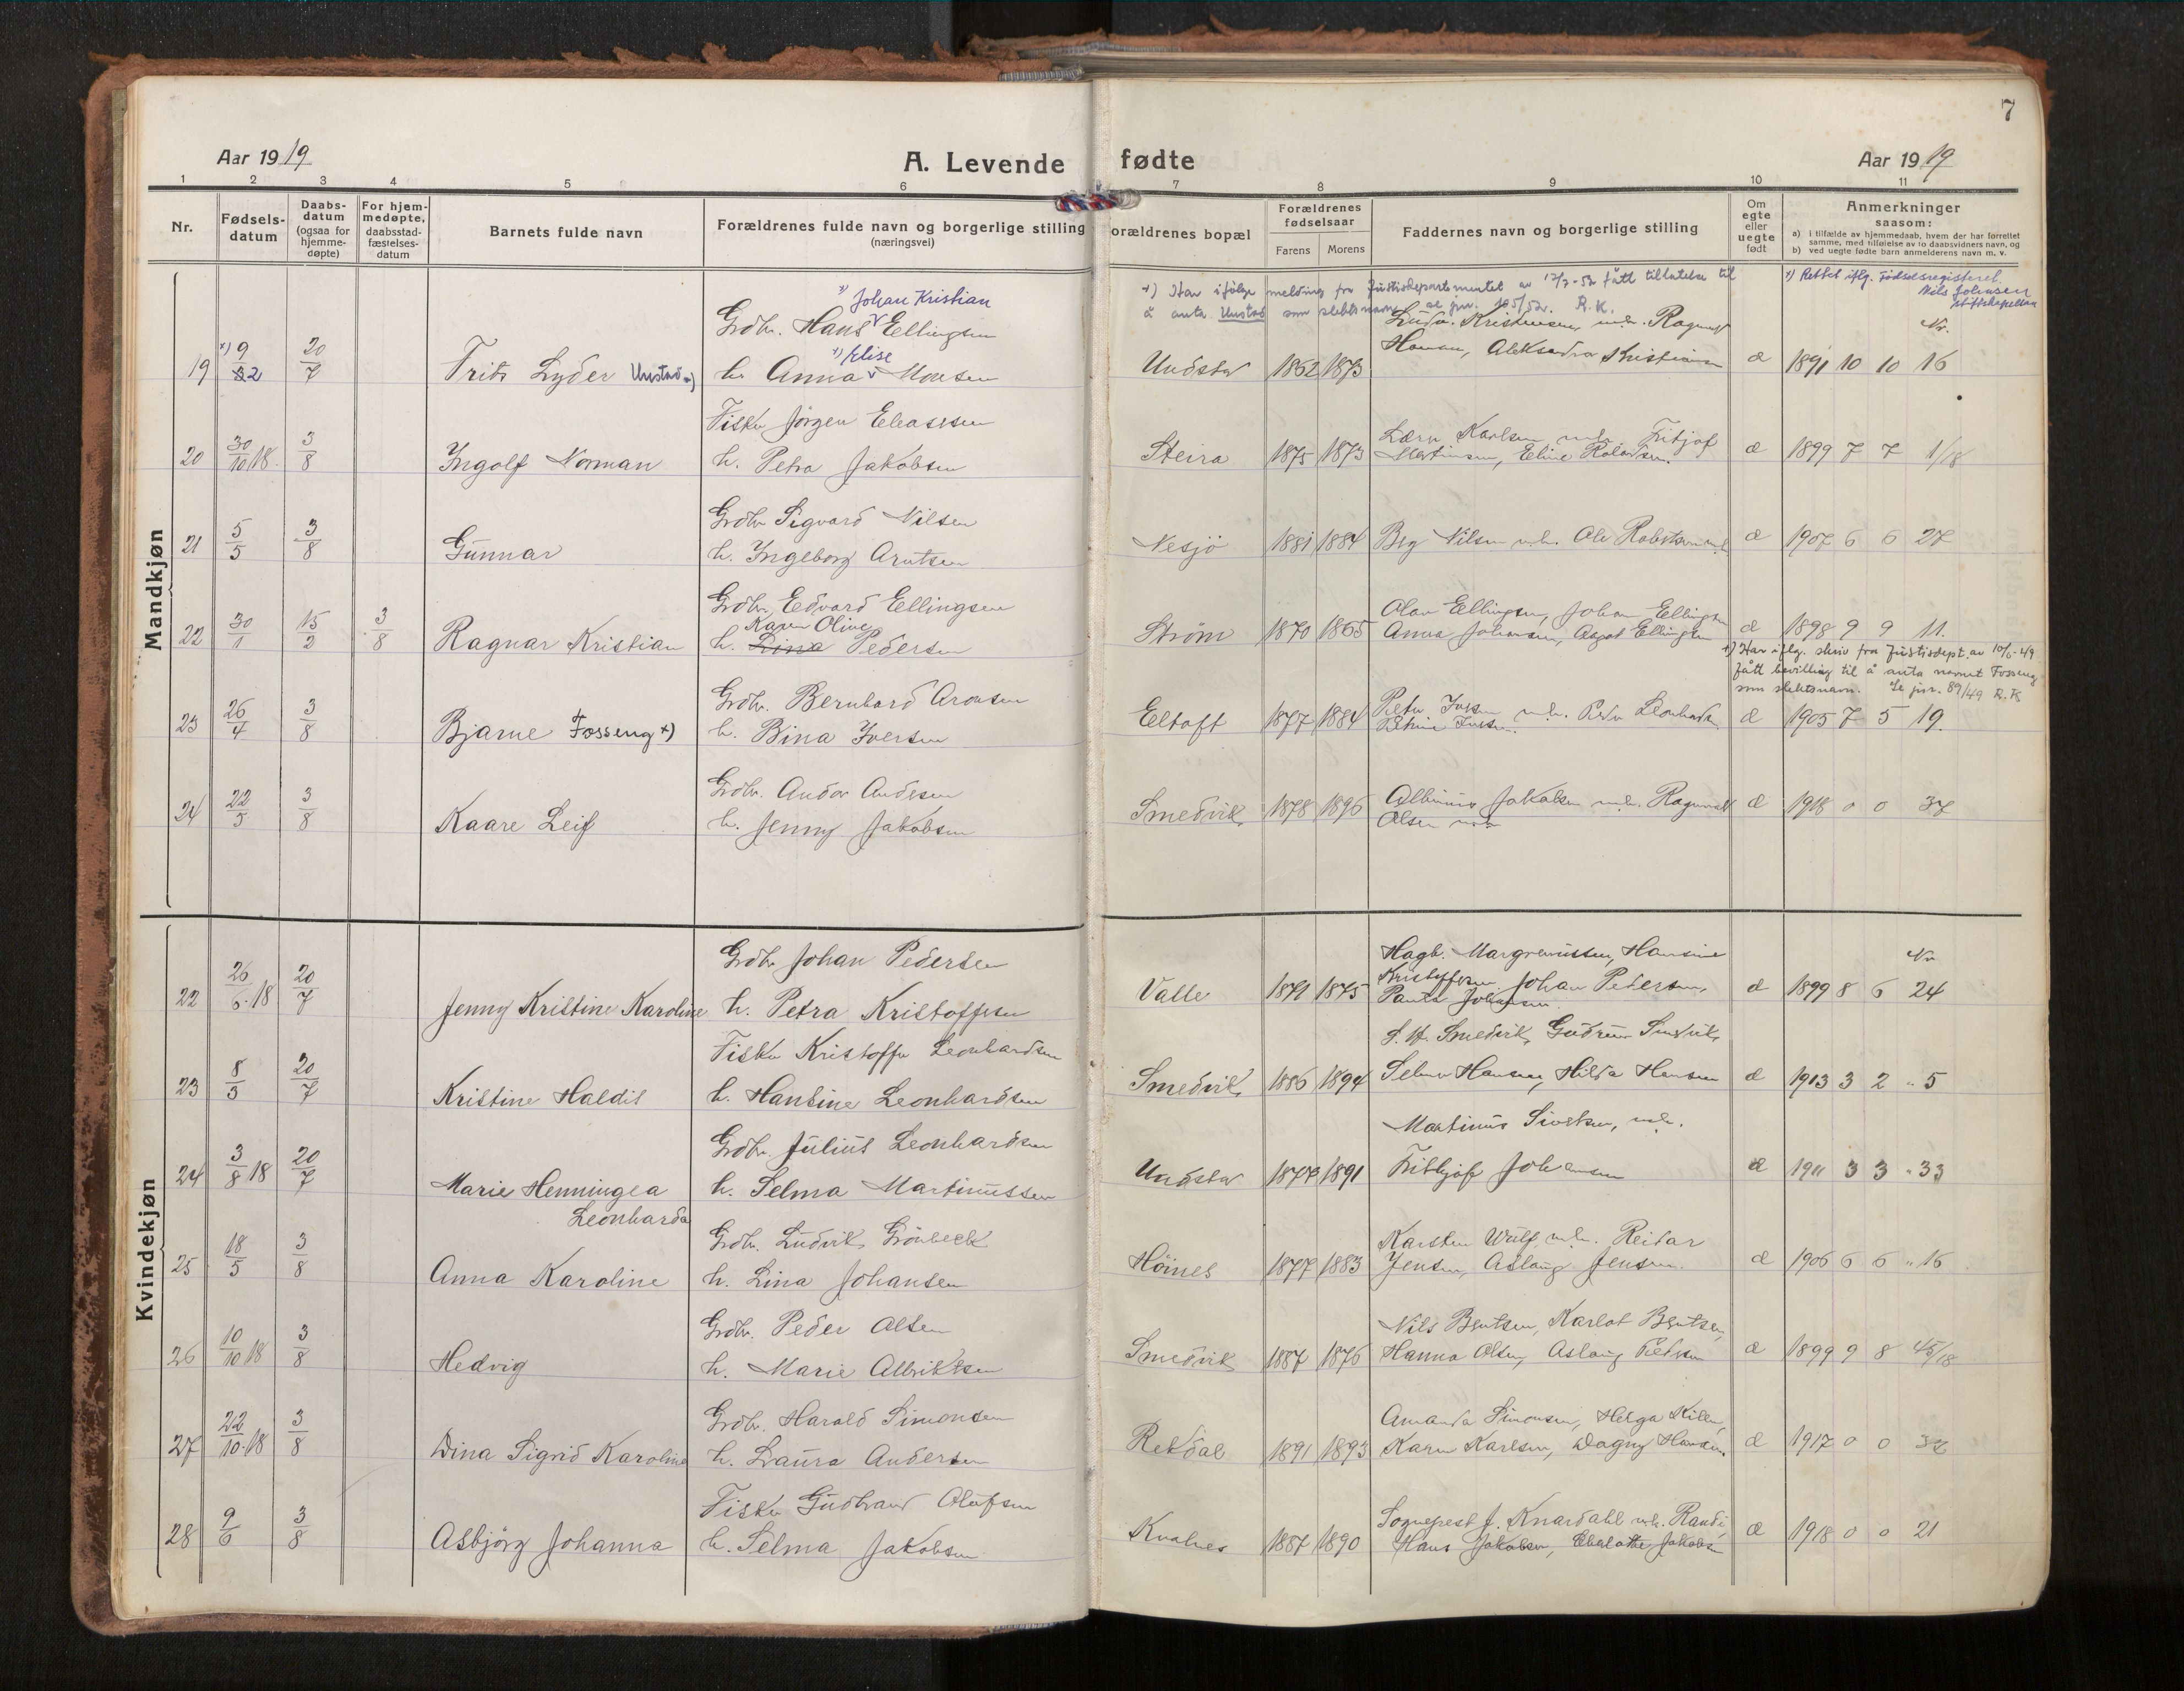 7
Aar 1919
A. Levende fødte
Aar 1919
1 2 3 4 5 6 7 8 9 10 11
Nr.
Fødsels-
datum
Daabs-
datum
(ogsaa for
hjemme-
døpte)
For hjem-
medøpte,
daabsstad-
fæstelses-
datum
Barnets fulde navn
Forældrenes fulde navn og borgerlige stilling
(næringsvei)
orældrenes bopæl
Forældrenes
fødselsaar
Farens Morens
Faddernes navn og borgerlige stilling
Om
egte
eller
uegte
født
Anmerkninger
saasom:
a) i tilfælde av hjemmedaab, hvem der har forrettet
samme, med tilføielse av to daabsvidners navn, og
b) ved uegte fødte barn anmelderens navn m. v.
Mandkjøn
x) Har ifølge melding fra Justisdepartementet av 17/3-52 fått tillatelse til
å anta Unstad som slektsnavn, se jnr. 105/52. R.K.
x) Rettet iflg. Fødselsregisteret.
Nils Johnsen
stiftskapellan
x) Johan Kristian
Grdbr. Hans Ellingsen
x) Elise
19 x) 9/2 20/7 Frits Lyder Unstad x) h. Anna Monsen
Undstad 1862 1873 Ludv. Kristensen, m.h. Ragnvald
Hansen, Aleksandra Kristiansen æ 1891 10 10 16
Nr.
Fisker Jörgen Eleasesen
20 30/10 18. 3/8 Ingolf Norman h. Petra Jakobsen
Steira 1875 1873 Lærer Karlsen m.h. Fritjof
Martinsen, Eline Rolandsen. æ 1899 7 7 1/18
Grdbr Sigvard Nilsen
21 5/5 3/8 Gunnar h. Ingeborg Arntsen
Nesjö 1881 1884 Berg Nilsen m.h. Ole Robertsen m.h. æ 1907 6 6 27
Grdbr. Edvard Ellingsen
Karen Olive
22 30/1 15/2 3/8 Ragnar Kristian h. Lina Pedersen
Ström 1870 1865 Olav Ellingsen, Johan Ellingsen
Anna Johansen, Asgot Ellingsen æ 1898 9 9 11.
x) Har iflg. skriv fra Justisdept. av 10/6-49
fått bevilling til å anta navnet Fosseng
som slektsnavn. Se jnr. 89/49 R.K
Grdbr. Bernhard Aronsen
23 26/4 3/8 Bjarne Fosseng x) h. Bina Iversen
Eltoft 1877 1884 Peter Iversen m.h. Peder Leonhardsen
æ 1905 7 5 19.
Grdbr. Andor Andersen
24 22/5 3/8 Kaare Leif h. Jenny Jakobsen
Smedvik 1878 1896 Albinus Jakobsen m.h. Ragnvald
Olsen m.h. æ 1918 0 0 37
Kvindekjøn
Grdbr Johan Pedersen
22 26/6.18 20/7 Jenny Kristine Karoline h. Petra Kristoffersen
Valle 1871 1875 Hagb. Margremussen, Hansine
Kristoffersen Johan Pedersen,
Johansen. æ 1899 8 6 24
Nr
Fisker Kristoffer Leonhardsen
23 8/3 20/7 Kristine Haldis h. Hansine Leonhardsen
Smedvik 1886 1894 Smedvik, Gudrun Smedvik,
Selma Hansen, Hilda Hansen æ 1913 3 2 " 5
Grdbr. Julius Leonhardsen
24 3/8 18 20/7 Marie Henningea
Leonharda h. Selma Martinussen
Undstad 1877 1891 Martinus Sivertsen, m.h.
Fithjof Johansen æ 1911 3 3 " 33
Grdbr. Ludvik Grönbeck
25 18/5 3/8 Anna Karoline h. Lina Johansen
Höines 1877 1883 Karsten Wulf m.h. Reidar
Jensen, Aslaug Jensen. æ 1906 6 6 " 16
Grdbr. Peder Olsen
26 10/10 18 3/8 Hedvig h. Marie Albriktsen
Smedvik 1887 1876 Nils Bentsen, Karlot Bentsen,
Hanna Olsen, Aslaug Pedersen æ 1899 9 8 45/18
Grdbr. Harald Simonsen
27 22/10.18 3/8 Dina Sigrid Karoline h. Laura Andersen
Rekdal 1891 1893 Amanda Simonsen, Helga Killen,
Karen Karlsen, Dagny Hansen. æ 1917 0 0 32
Fisker Gudbrand Olufsen
28 9/6 3/8 Asbjörg Johanna h. Selma Jakobsen
Kvalnes 1887 1890 Sogneprest J. Knardahl m.h. Randi,
Hans Jakobsen, Jakobsen æ 1918 0 0 21